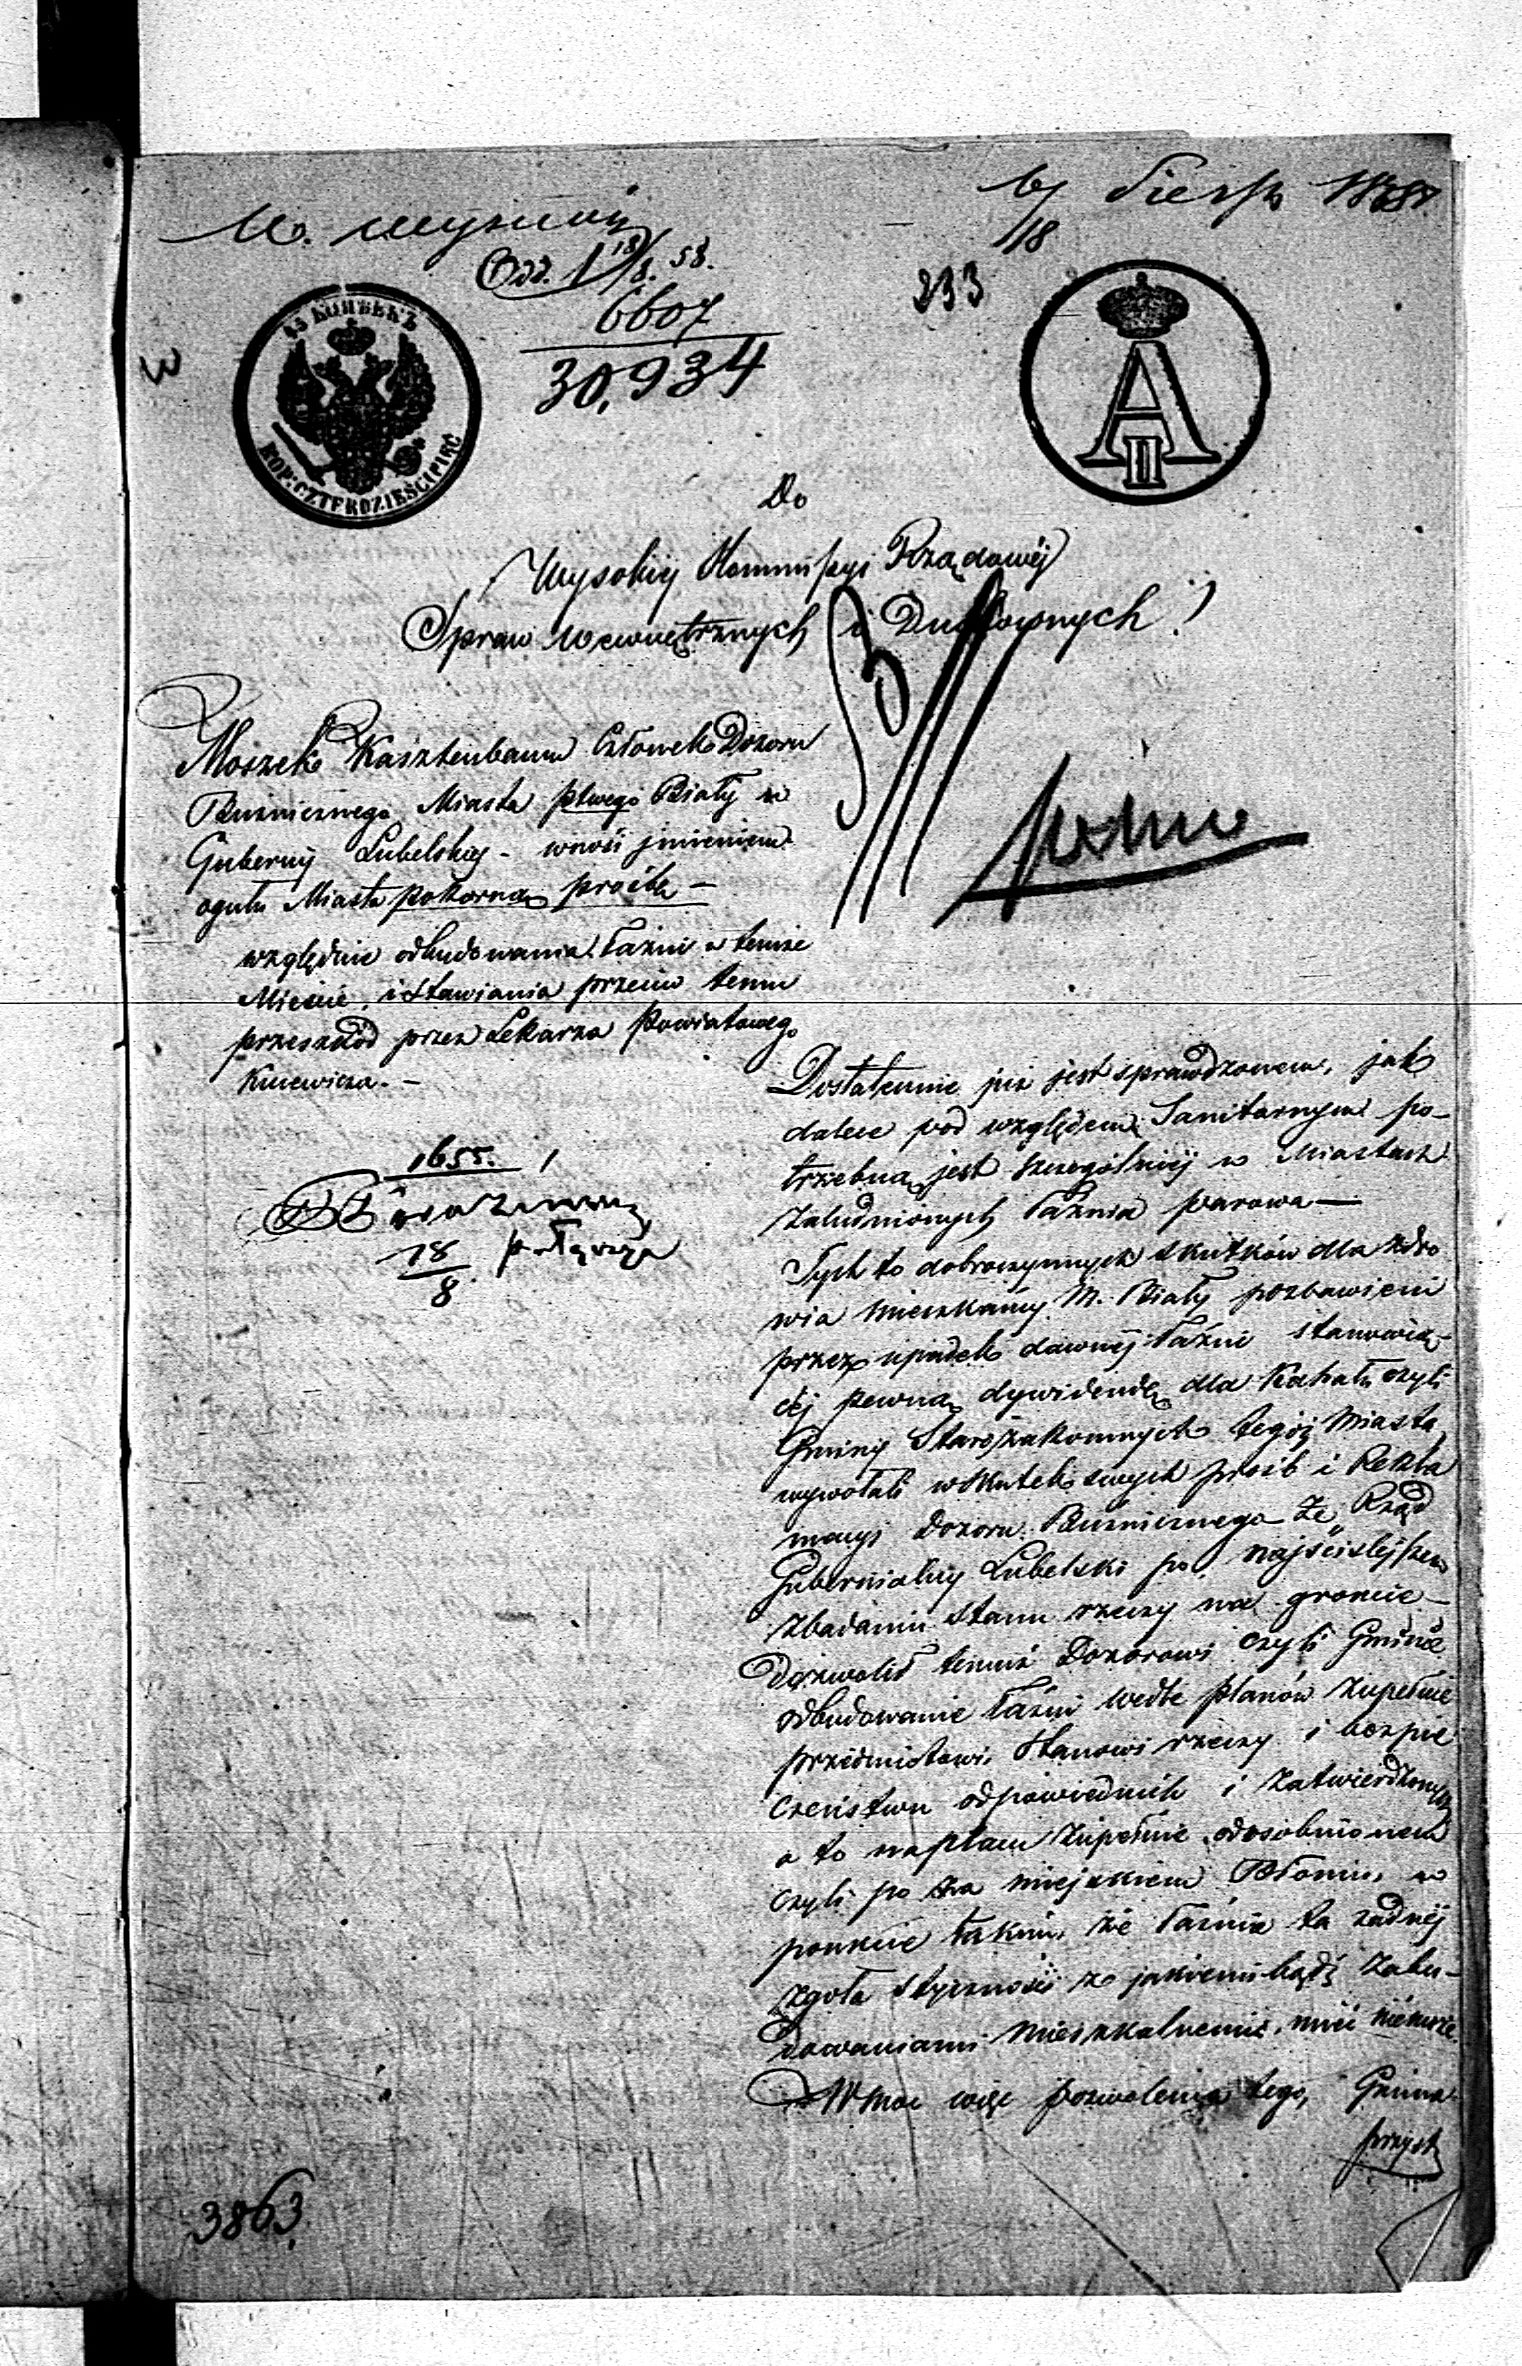 6/18 Sierp 1858.
W. wyznań
Odd. 1 18/8. 58.
6607
30,934
233
45 КОПѢЕКЪ
KOP: CZTERDZIEŚCI PIĘĆ
A II
Do
Wysokiej Kommissyi Rządowéj
Spraw Wewnętrznych i Duchownych!
Moszek Kasztenbaum Członek Dozoru
Bużnicznego Miasta ptwego Biały w
Gubernij Lubelskiej - wnosi jmieniem
ogułu Miasta pokorną prośbę —
względnie odbudowania Łaźni w temże
Mieście, i stawiania przeciw temu
przeszkód przez Lekarza Powiatowego
1655.
18/8
Dostatecznie już jest sprawdzonem, jak
dalece pod względem Sanitarnym po-
trzebną jest szczególniéj w Miastach
zaludnionych Łaźnia parowa —
Tych to dobroczynnych skutków dla zdro
wia mieszkańcy M. Biały pozbawieni
przez upadek dawnéj Łaźni stanowią-
céj pewną dywidendę dla Kahału czyli
Gminy Starozakonnych tegóż Miasta
wywołali wskutek swych prośb i Rekla
macyi Dozoru Bużnicznego że Rząd
Gubernialny Lubelski po najściślejszem
zbadaniu Stanu rzeczy na groncie —
dozwolił temuż Dozorowi czyli Gminie
odbudowanie Łaźni wedle planów zupełnie
przedmiotowi, Stanowi rzeczy i bezpie
czeństwu odpowiednich i zatwierdzonych
a to na placu zupełnie odosobnionem
czyli po za miejskiem Błoniu, w
ponkcie takim, że Łaźnia ta żadnéj
zgoła styczności ze jakiemi bądź zabu-
dowaniami mieszkalnemi, mieć niemoże.
W moc więc pozwolenia tego, Gmina
przyst
3863.